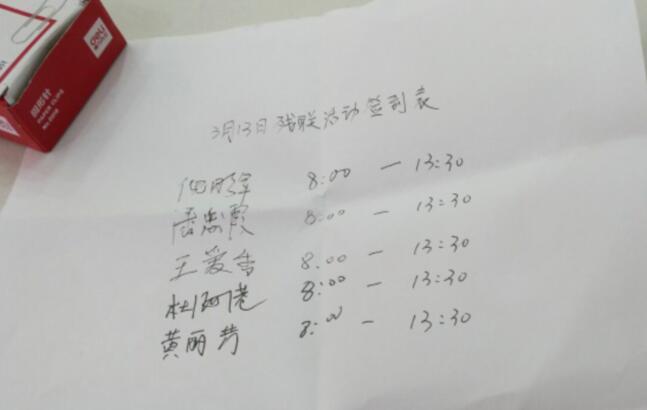 deli
回形针
PAPER CLIPS
3月13日残联活动签到表
8:00 — 13:30
8:00 — 13:30
王爱香 8.00 — 13:30
8:00 — 13:30
黄丽芳 8:00 — 13:30